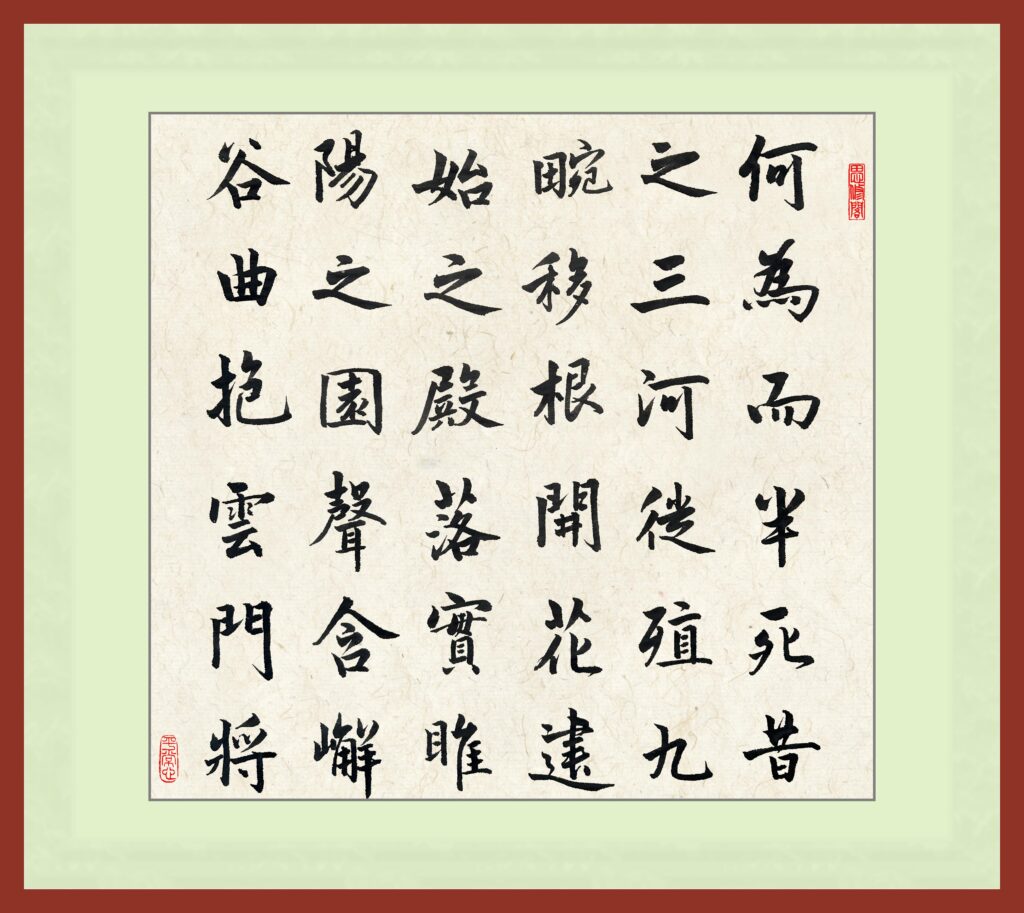 何為而半死昔
之三河徙殖九
畹移根開花建
始之殿落實睢
陽之園聲含嶰
谷曲抱雲門將
思補閣
平常心